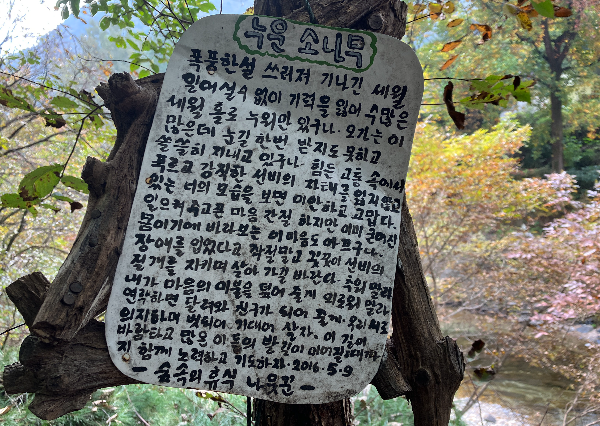 누운 소나무
폭풍한설 쓰러저 기나긴 세월
일어설수 없이 기력을 잃어 수많은
세월 홀로 누워만 있구나. 오가는 이
많은데 눈길 한번 받지도 못하고
쓸쓸히 지내고 있구나. 힘든 고통 속에서
푸르고 강직한 선비의 자태를 잃지않고
있는 너의 모습을 보면 미안하고 고맙다.
일으켜 주고픈 마음 간절 하지만 이미
몸이기에 바라보는 이 마음도 아프구나.
장애를 입었다고 좌절말고 꿋꿋이 선비의
절개를 지키며 살아 가길 바란다. 추워 떨때
내가 마음의 이불을 덮어 줄게 외로워 말라
연락하면 달려와 친구가 되어 줄게. 우리 서로
의지하며 벗되어 기대어 살자. 이 길이
바람타고 많은 이들의 발길이 이어질때까
지 함께 노력하고 기도하자. 2016.5.9
- 숲속의 휴식 나무꾼 -